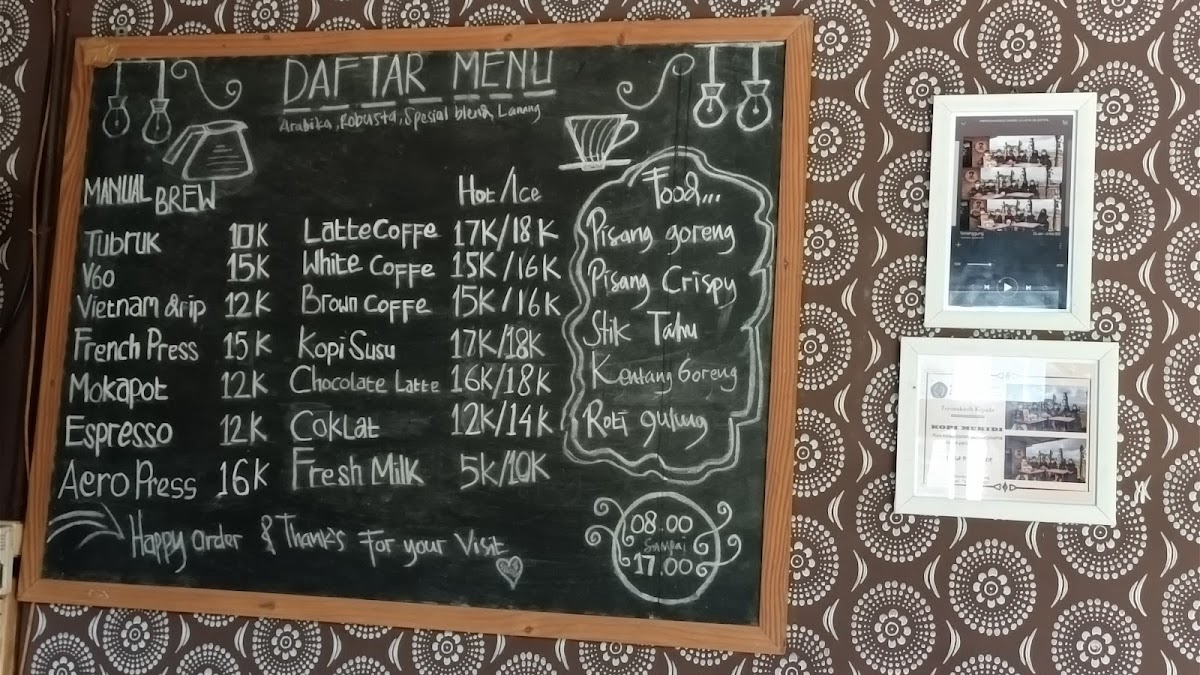 DAFTAR MENU
Arabika, Robusta, Spesial blend, Lanang
MANUAL BREW
Tubruk 10K
V60 15K
Vietnam drip 12K
French Press 15K
Mokapot 12K
Espresso 12K
Aero Press 16K
Hot/Ice
Latte Coffe 17K/18K
White Coffe 15K/16K
Brown Coffe 15K/16K
Kopi Susu 17K/18K
Chocolate Latte 16K/18K
Coklat 12K/14K
Fresh Milk 5K/10K
Food...
Pisang goreng
Pisang Crispy
Stik Tahu
Kentang Goreng
Roti gulung
Happy order & Thank's For your Visit
08.00
Sampai
17.00
Terimakasih Kepada
KOPI MUKIDI